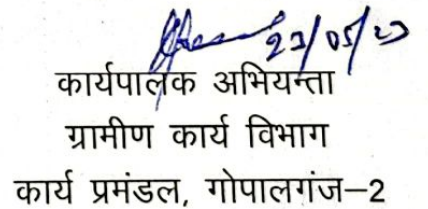 23/05/23
कार्यपालक अभियन्ता
ग्रामीण कार्य विभाग
कार्य प्रमंडल, गोपालगंज–2